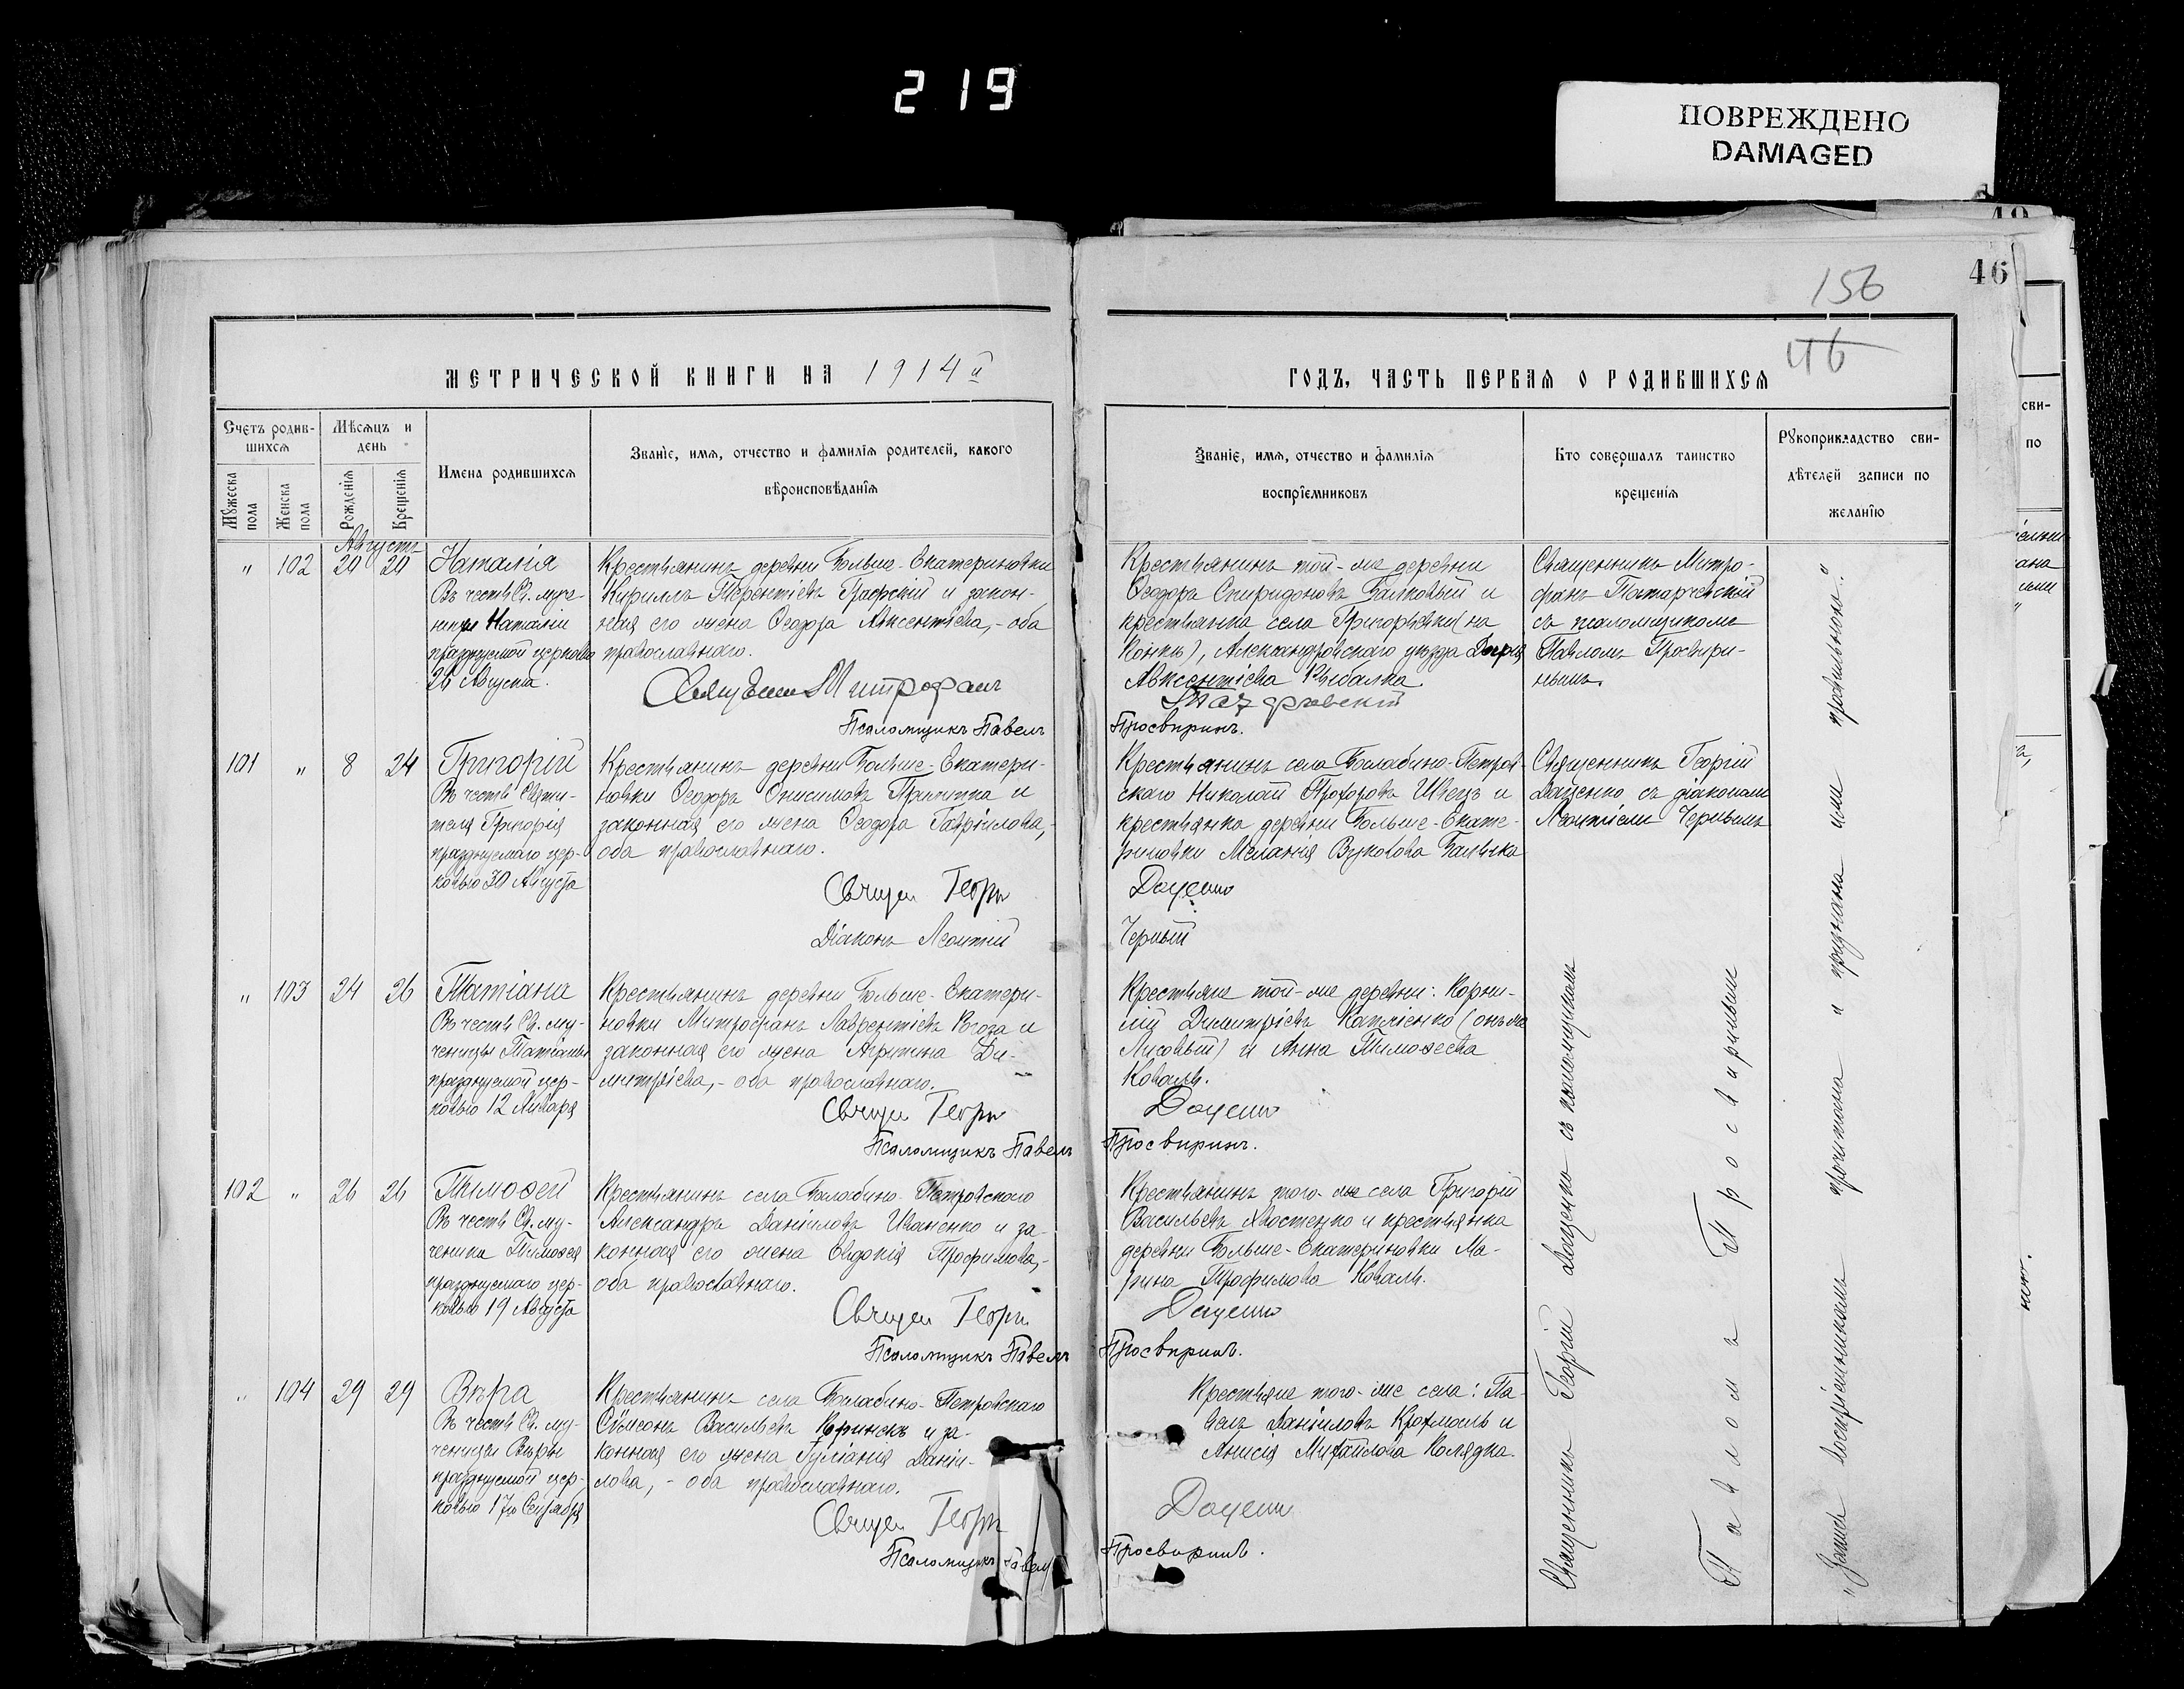 219
ПОВРЕЖДЕНО
DAMAGED
46
156
46
МЕТРИЧЕСКОЙ КНИГИ НА 1914й
ГОДЪ, ЧАСТЬ ПЕРВАЯ О РОДИВШИХСЯ
Счетъ родив-
шихся
Мужеска пола
Женска пола
Мѣсяцъ и
день
Рожденія
Крещенія
Имена родившихся
Званіе, имя, отчество и фамилія родителей, какого
вѣроисповѣданія
Званіе, имя, отчество и фамилія
воспріемниковъ
Кто совершалъ таинство
крещенія
Рукоприкладство сви-
дѣтелей записи по
желанію
Августъ
" 102 20 20
Наталія
Въ честь Св. муче-
ницы Наталіи
празднуемой церковью
26 Августа.
Крестьянинъ деревни Больше-Екатериновки
Кириллъ Терентіевъ и закон-
ная его жена Ѳеодора Авксентіева,- оба
православнаго.
Священникъ Митрофанъ
Псаломщикъ Павелъ
Крестьянинъ той-же деревни
Ѳеодоръ Спиридоновъ Балковый и
крестьянка села Григорьевки (на
Конкѣ), Александровскаго уѣзда Дарія
Авксентіева Рыбалка
Просвиринъ.
Священникъ Митро-
фанъ
съ псаломщикомъ
Павломъ Просвири-
нымъ.
101 " 8 24
Григорій
Въ честь Святи-
теля Григорія
празднуемаго цер-
ковью 30 Августа
Крестьянинъ деревни Больше-Екатери-
новки Ѳеодоръ Онисимовъ и
законная его жена Ѳеодора Гавріилова,-
оба православнаго.
Священ Георгій
Діаконъ Леонтій
Крестьянинъ села Балабино-Петров-
скаго Николай Прохоровъ Швецъ и
крестьянка деревни Больше-Екате-
риновки Меланія Вуколова
Даценко
Черный
Священникъ Георгій
Даценко съ діакономъ
Леонтіемъ Чернымъ
" 103 24 26
Татіана
Въ честь Св. му-
ченицы Татіаны
празднуемой цер-
ковью 12 Января
Крестьянинъ деревни Больше-Екатери-
новки Митрофанъ Лаврентіевъ и
законная его жена Агрипина Ди-
митріева,- оба православнаго.
Священ Георгій
Псаломщикъ Павелъ
Крестьяне той-же деревни: Корни-
лій Димитріевъ Каплienко (онъ же
Лисовый) и Анна Тимоѳеева
Коваль.
Даценко
Просвиринъ.
102 " 26 26
Тимоѳей
Въ честь Св. му-
ченика Тимоѳея
празднуемаго цер-
ковью 19 Августа
Крестьянинъ села Балабино-Петровскаго
Александръ Даніиловъ Иваненко и за-
конная его жена Евдокія Трофимова,-
оба православнаго.
Священ Георгій
Псаломщикъ Павелъ
Крестьянинъ того-же села Григорій
Васильевъ Хвостенко и крестьянка
деревни Больше-Екатериновки Ма-
рина Трофимова Коваль.
Даценко
Просвиринъ.
" 104 29 29
Вѣра
Въ честь Св. му-
ченицы Вѣры
празднуемой цер-
ковью 17го Сентября
Крестьянинъ села Балабино-Петровскаго
Сѵмеонъ Васильевъ и за-
конная его жена Іуліанія Даніи-
лова, - оба православнаго.
Священ Георгій
Псаломщикъ Павелъ
Крестьяне того-же села: Па-
велъ Даніиловъ Крохмаль и
Анисія Михайлова Колядка.
Даценко
Просвиринъ.
Священникъ Георгій Даценко съ псаломщикомъ
Павломъ Просвиринымъ
"Запись воспріемникамъ прочитана и признана ими правильною."